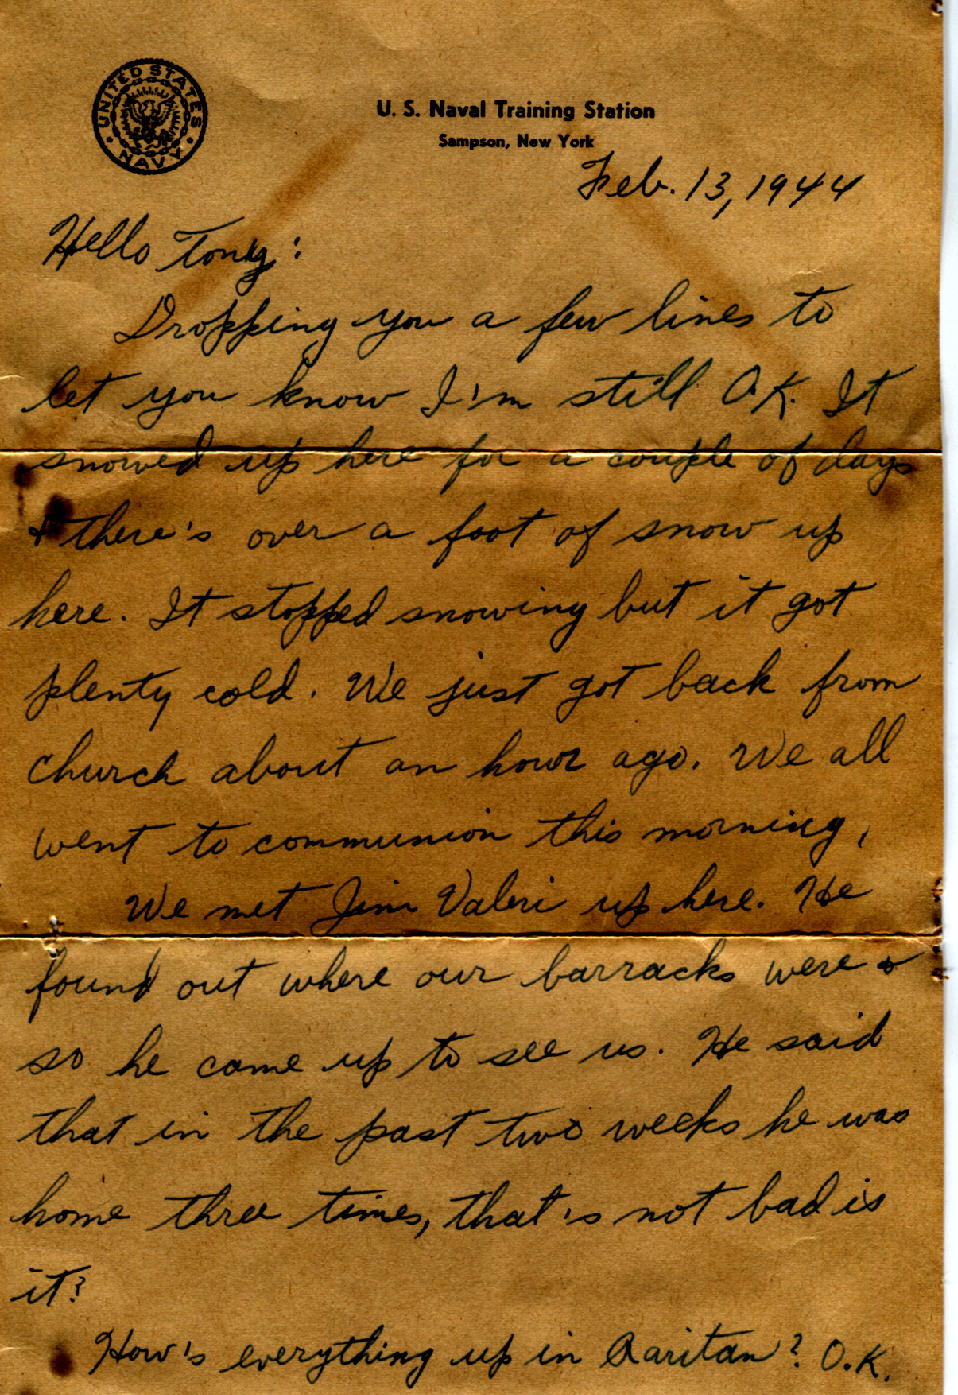 UNITED STATES NAVY
U. S. Naval Training Station
Sampson, New York
Feb. 13, 1944
Hello Tony:
Dropping you a few lines to
let you know I'm still O.K. It
snowed up here for a couple of days
& there's over a foot of snow up
here. It stopped snowing but it got
plenty cold. We just got back from
church about an hour ago. We all
went to communion this morning,
We met Jim Valeri up here. He
found out where our barracks were &
so he came up to see us. He said
that in the past two weeks he was
home three times, that's not bad is
it?
How's everything up in Raritan? O.K.